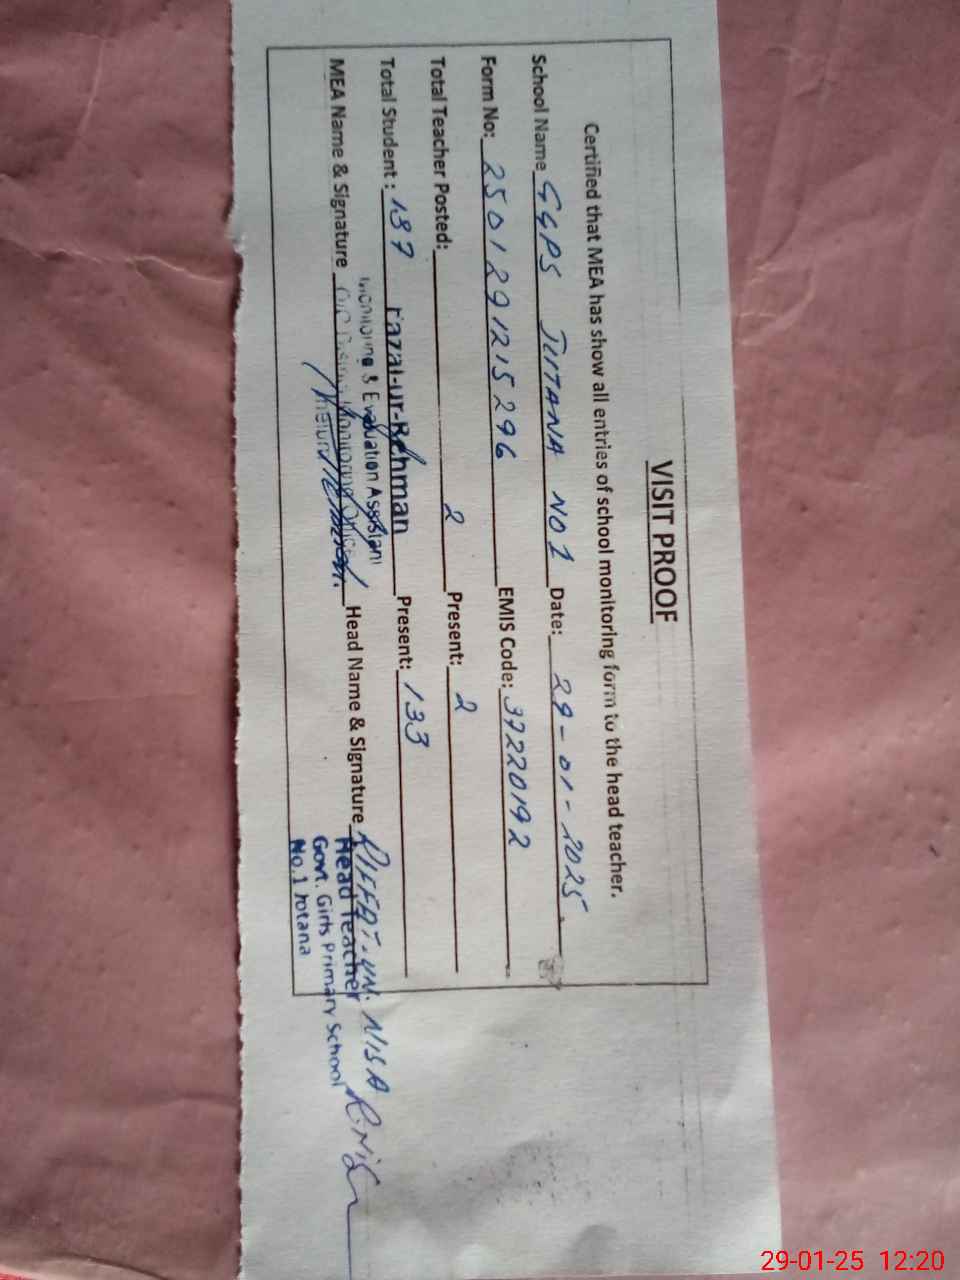 VISIT PROOF
Certified that MEA has show all entries of school monitoring form to the head teacher.
School Name GGPS JUTANA NO1 Date: 29-01-2025
Form No: 2501291215296 EMIS Code: 37220192
Total Teacher Posted: 2 Present: 2
Total Student : 137 Present: 133
Fazal-ur-Rehman
Monitoring & Evaluation Assistant
MEA Name & Signature Head Name & Signature RIFFAT. UN. NISA
Head Teacher
Govt. Girls Primary School
No.1 Jotana
29-01-25 12:20